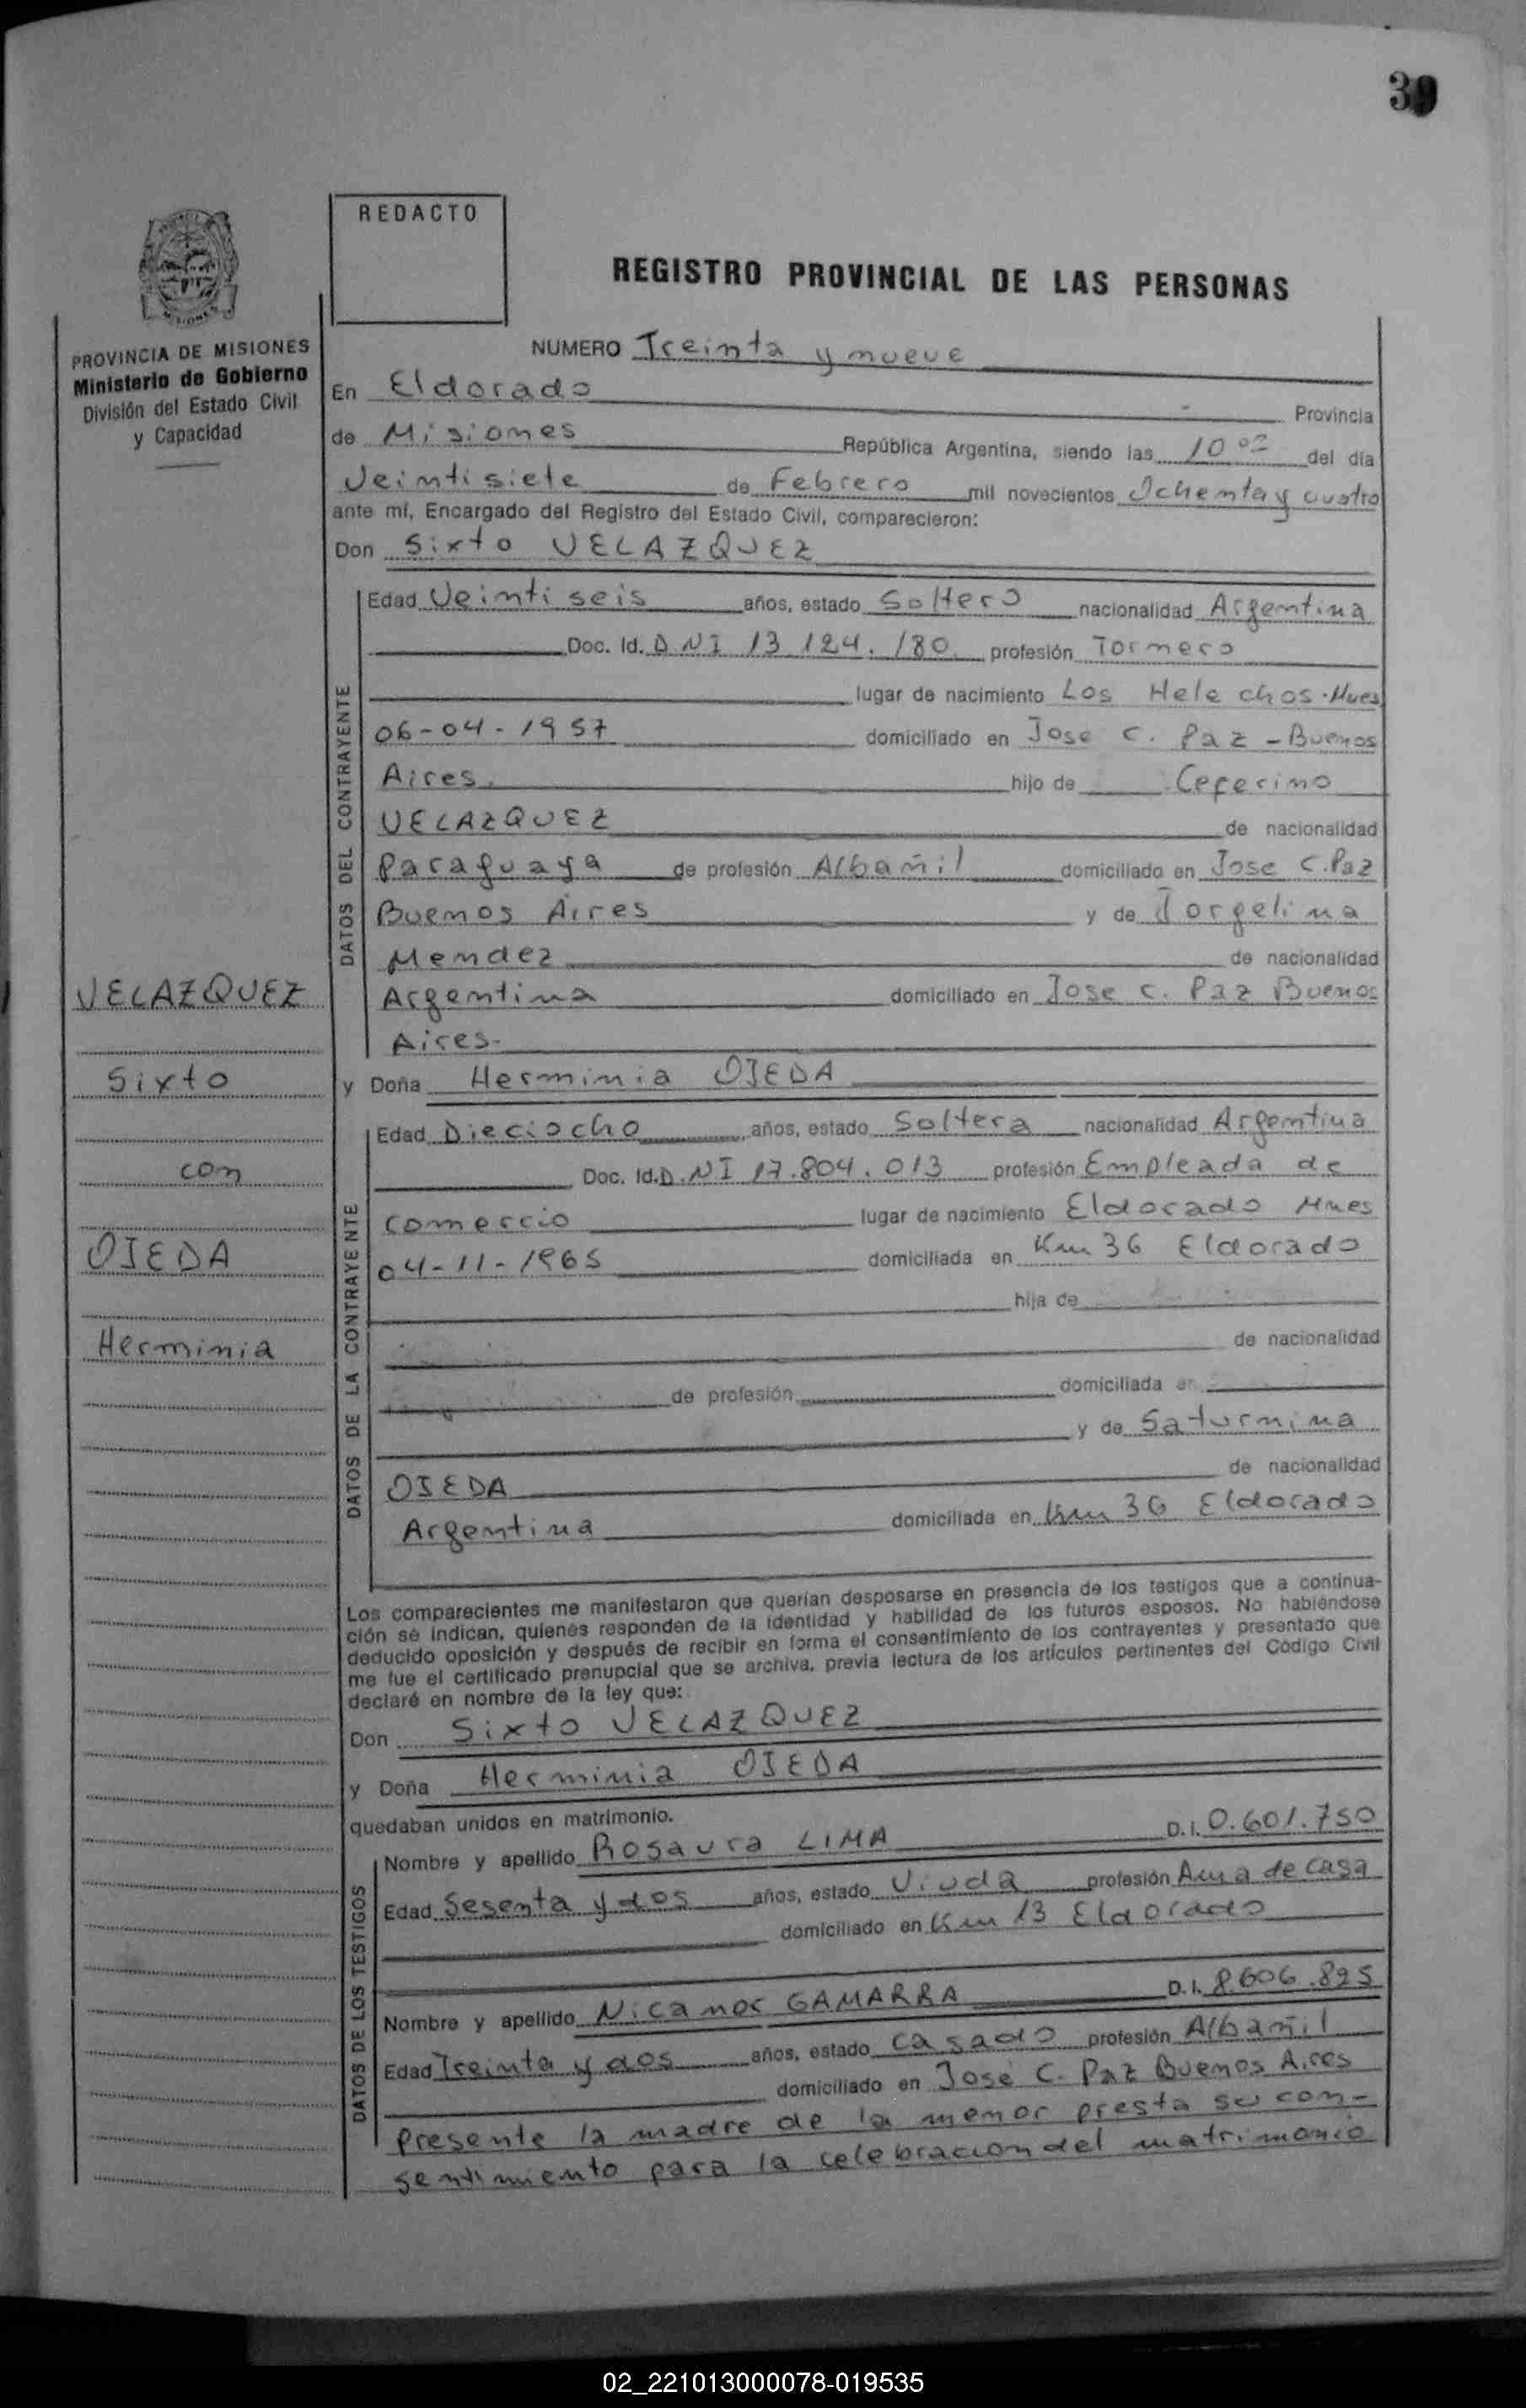 39
REDACTO
REGISTRO PROVINCIAL DE LAS PERSONAS
PROVINCIA DE MISIONES
Ministerio de Gobierno
División del Estado Civil
y Capacidad
NUMERO Treinta y nueve
En Eldorado Provincia
de Misiones República Argentina, siendo las 10 00 del día
Veintisiete de Febrero mil novecientos Ochenta y cuatro
ante mí, Encargado del Registro del Estado Civil, comparecieron:
Don Sixto VELAZQUEZ
DATOS DEL CONTRAYENTE
Edad Veintiseis años, estado Soltero nacionalidad Argentina
Doc. Id. D NI 13 124. 180 profesión Tornero
lugar de nacimiento Los Helechos - Mnes
06-04-1957 domiciliado en Jose C. Paz - Buenos
Aires. hijo de Ceferino
VELAZQUEZ de nacionalidad
Paraguaya de profesión Albañil domiciliado en Jose C. Paz
Buenos Aires y de Jorgelina
Mendez de nacionalidad
Argentina domiciliado en Jose C. Paz Buenos
Aires-
VELAZQUEZ
Sixto
con
OJEDA
Herminia
y Doña Herminia OJEDA
DATOS DE LA CONTRAYENTE
Edad Dieciocho años, estado Soltera nacionalidad Argentina
Doc. Id. D.NI 17.804.013 profesión Empleada de
comercio lugar de nacimiento Eldorado Mnes
04-11-1965 domiciliada en Km 36 Eldorado
hija de
de nacionalidad
de profesión domiciliada en
y de Saturnina
OJEDA de nacionalidad
Argentina domiciliada en Km 36 Eldorado
Los comparecientes me manifestaron que querían desposarse en presencia de los testigos que a continua-
ción se indican, quienes responden de la identidad y habilidad de los futuros esposos. No habiéndose
deducido oposición y después de recibir en forma el consentimiento de los contrayentes y presentado que
me fue el certificado prenupcial que se archiva, previa lectura de los artículos pertinentes del Código Civil
declaré en nombre de la ley que:
Don Sixto VELAZQUEZ
y Doña Herminia OJEDA
quedaban unidos en matrimonio.
DATOS DE LOS TESTIGOS
Nombre y apellido Rosaura LIMA D.I. 0.601.750
Edad Sesenta y dos años, estado Viuda profesión Ama de casa
domiciliado en Km 13 Eldorado
Nombre y apellido Nicanor GAMARRA D.I. 8.606.895
Edad Treinta y dos años, estado casado profesión Albañil
domiciliado en José C. Paz Buenos Aires
presente la madre de la menor presta su con-
sentimiento para la celebracion del matrimonio
02_221013000078-019535